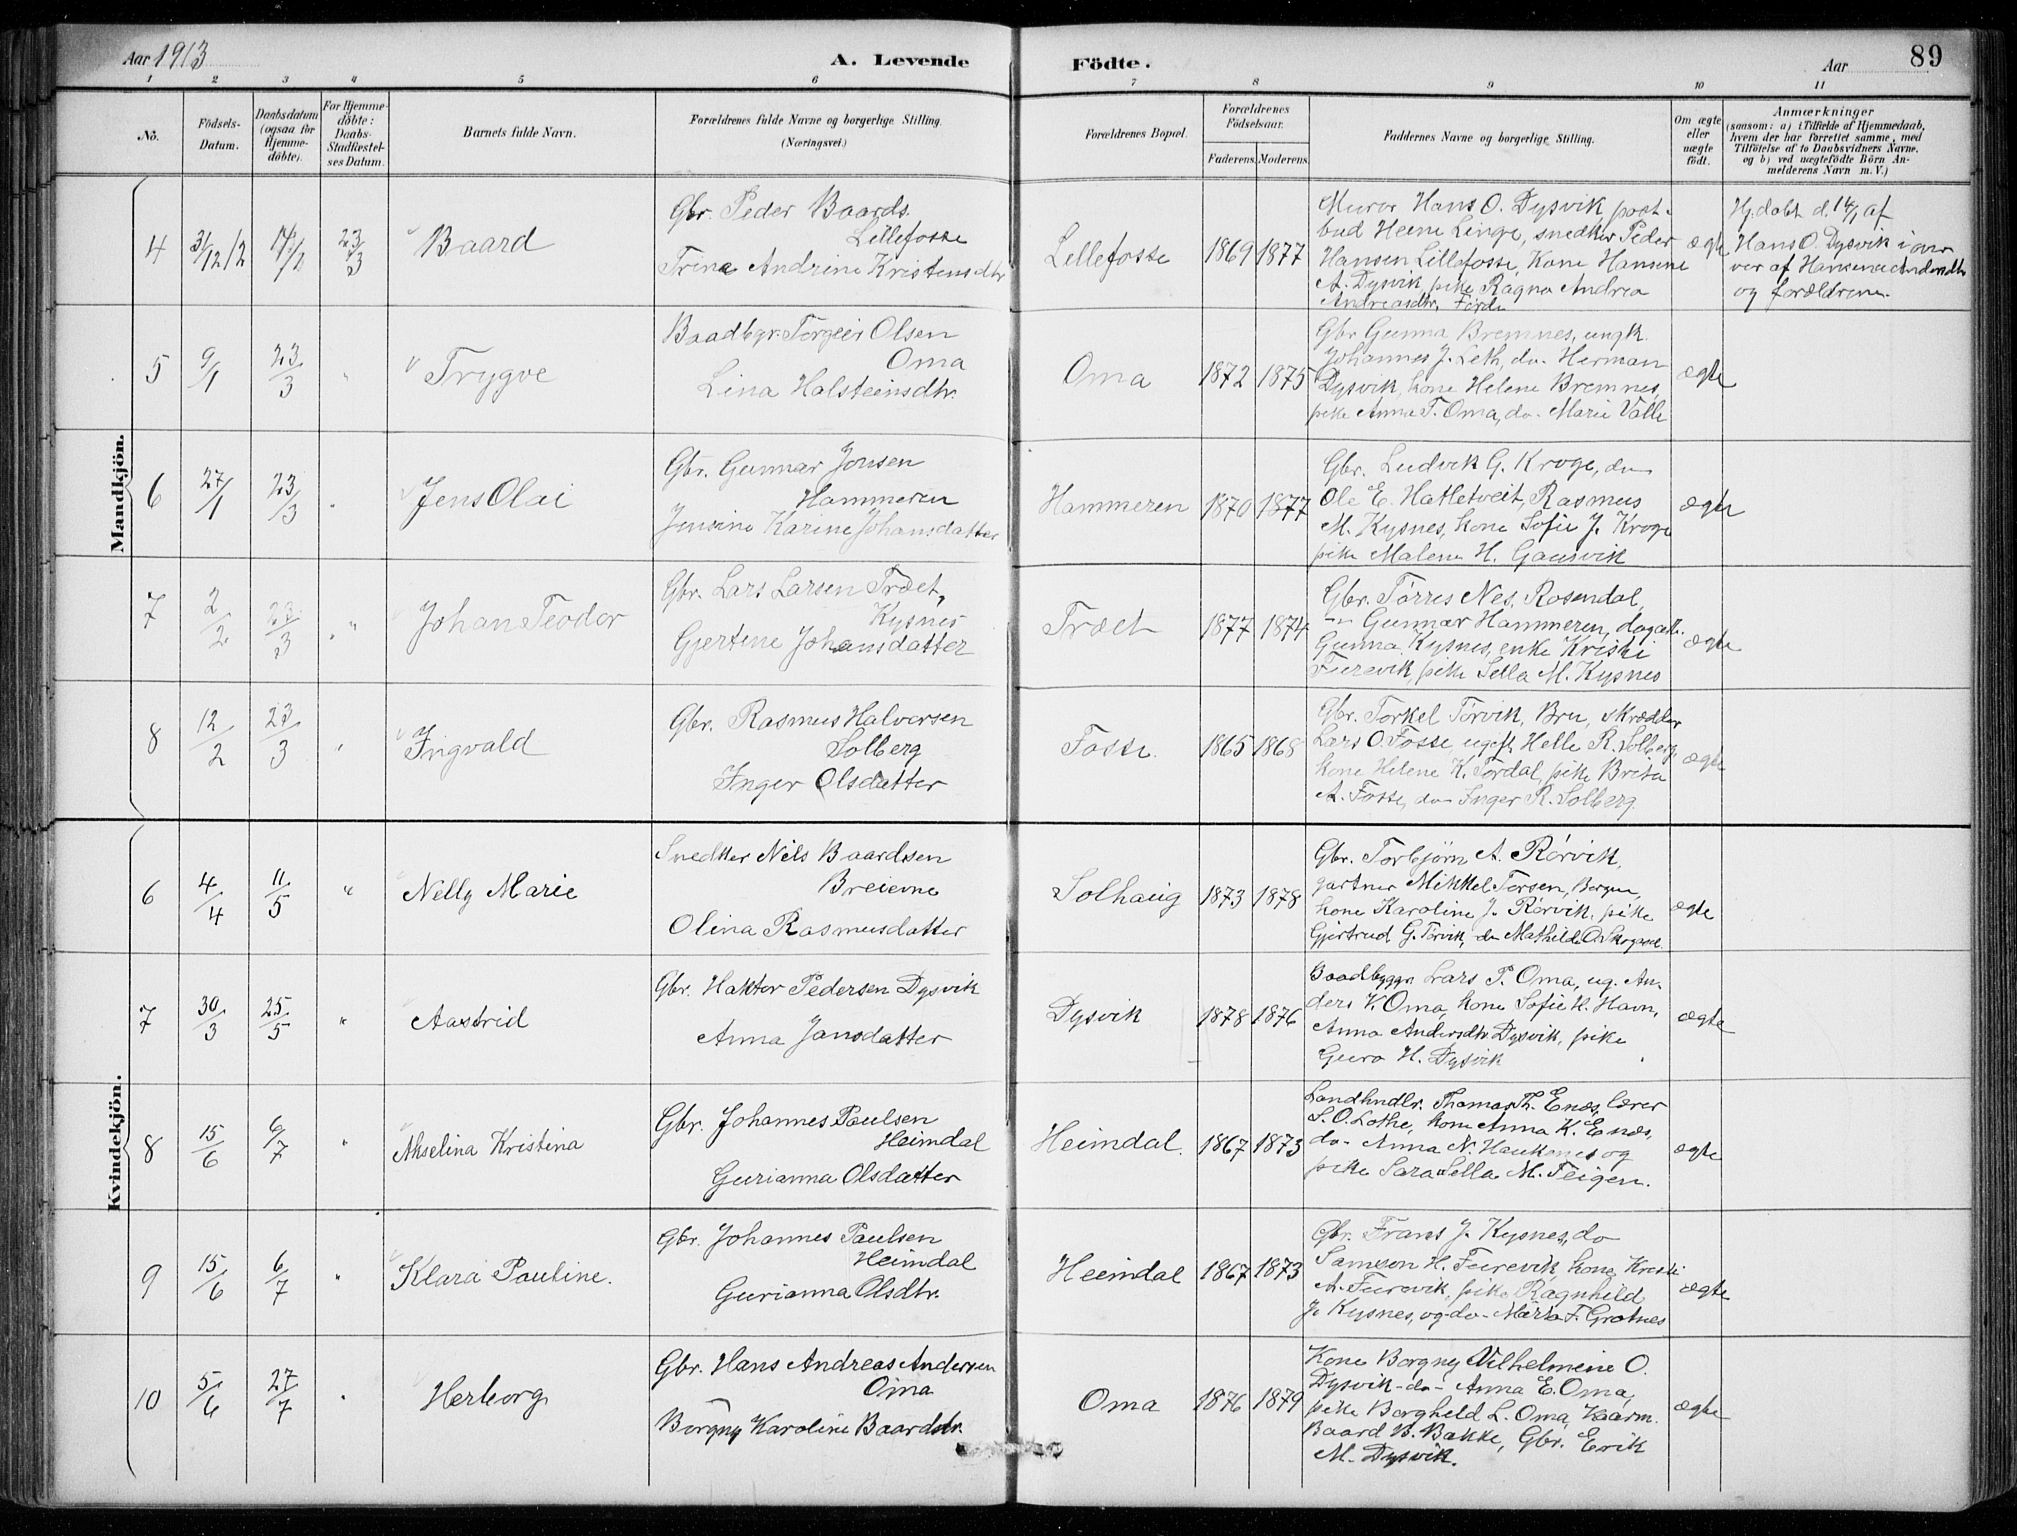 Aar 1913
A. Levende Födte.
Aar
89
1 2 3 4 5 6 7 8 9 10 11
No.
Födsels-
Datum.
Daabsdatum
(ogsaa for
Hjemme-
döbte).
For Hjemme-
döbte:
Daabs-
Stadfæstel-
ses Datum.
Barnets fulde Navn.
Forældrenes fulde Navne og borgerlige Stilling.
(Næringsvei.)
Forældrenes Bopæl.
Forældrenes
Födselsaar.
Faderens. Moderens.
Faddernes Navne og borgerlige Stilling.
Om ægte
eller
uægte
födt.
Anmærkninger
(saasom: a) i Tilfælde af Hjemmedaab,
hvem der har forrettet samme, med
Tilföielse af to Daabsvidners Navne.
og b) ved uægtefödte Börn An-
melderens Navn m. V.)
Mandkjön.
4
31/12 12
23/3
Baard
Gbr. Peder Baards.
Lillefosse
Trine Andrine Kristensdtr
Lillefosse
1869 1877
Murer Hans O. Dysvik, post-
bud Heine Linge, snedker Peder
Hansen Lillefosse, Kone Hansine
A. Dysvik, pike Ragna Andrea
Andreasdtr. Förde
ægte
Hj.döbt d. 14/1 af
Hans O. Dysvik i over
vær af Hansine Andersdtr
og forældrene.
5
9/1
23/3
"
Trygve
Baadbgr. Torgeir Olsen
Oma
Lina Halsteinsdtr.
Oma
1872 1875
Gbr Gunna Bremnes, ungk.
Johannes J. Leth, do- Herman
Dysvik, kone Helene Bremnes,
pike Anna T. Oma, do- Marie Valle
ægte
6
27/1
23/3
"
Jens Olai
Gbr. Gunnar Jonsen
Hammeren
Jensine Karine Johansdatter
Hammeren
1870 1877
Gbr. Ludvik G. Kroge, do
Ole E. Hatletveit, Rasmus
M. Kysnes, kone Sofie J. Kroge
pike Malene H. Gausvik
ægte
7
2/2
23/3
"
Johan Teodor
Gbr. Lars Larsen Træet,
Kysnes
Gjertine Johansdatter
Træet
1877 1874
Gbr. Törres Nes, Rosendal
-"- Gunnar Hammeren,
Gunna Kysnes, enke Kristi
Furevik, pike Sella M. Kysnes
ægte
8
12/2
23/3
"
Ingvald
Gbr. Rasmus Halvorsen
Solberg
Inger Olsdatter
Fosse.
1865 1868
Gbr. Torkel Törvik, Bru, skrædder
Lars O. Fosse, ugift Helle R. Solberg,
kone Helene K. Tordal, pike Brita
A. Fosse, do Inger R. Solberg.
ægte
Kvindekjön.
6
4/4
11/5
"
Nelly Marie
Snedker Nils Baardsen
Breievne
Olina Rasmusdatter
Solhaug
1873 1878
Gbr. Torbjörn A. Rörvik,
gartner Mikkel Torsen, Bergen,
kone Karoline J. Rörvik, pike
Gjertrud G. Törvik, do Mathilde O.
ægte
7
30/3
25/5
"
Aastrid
Gbr. Haktor Pedersen Dysvik
Anna Jansdatter
Dysvik
1878 1876
Baadbyggr. Lars P. Oma, ug. An-
ders K. Oma, kone Sofie H. Havn,
Anna Andersdtr Dysvik, pike
Guro H. Dysvik
ægte
8
15/6
6/7
"
Akselina Kristina
Gbr. Johannes Paulsen
Heimdal
Gurianna Olsdatter
Heimdal.
1867 1873
Landhndlr. Thomas Th. Enæs, lærer
S. O. Lothe, kone Anna K. Enæs,
do- Anna N. Haukenes og
pike Sara Sella M. Teigen.
ægte
9
15/6
6/7
"
Klara Pauline.
Gbr. Johannes Paulsen
Heimdal
Gurianna Olsdtr.
Heimdal
1867 1873
Gbr. Frans J. Kysnes, do
Samson H. Furevik, kone Kristi
A. Furevik, pike Ragnhild
J. Kysnes, og do- Märta F. Grotnes
ægte
10
5/6
27/7
"
Herborg
Gbr. Hans Andreas Andersen
Oma
Borgny Karoline Baardsdtr.
Oma
1876 1879
Kone Borgny Vilhelmine O.
Dysvik -do- Anna E. Oma,
pike Borghild L. Oma,
Baard B. Bakke, Gbr. Erik
M. Dysvik.
ægte